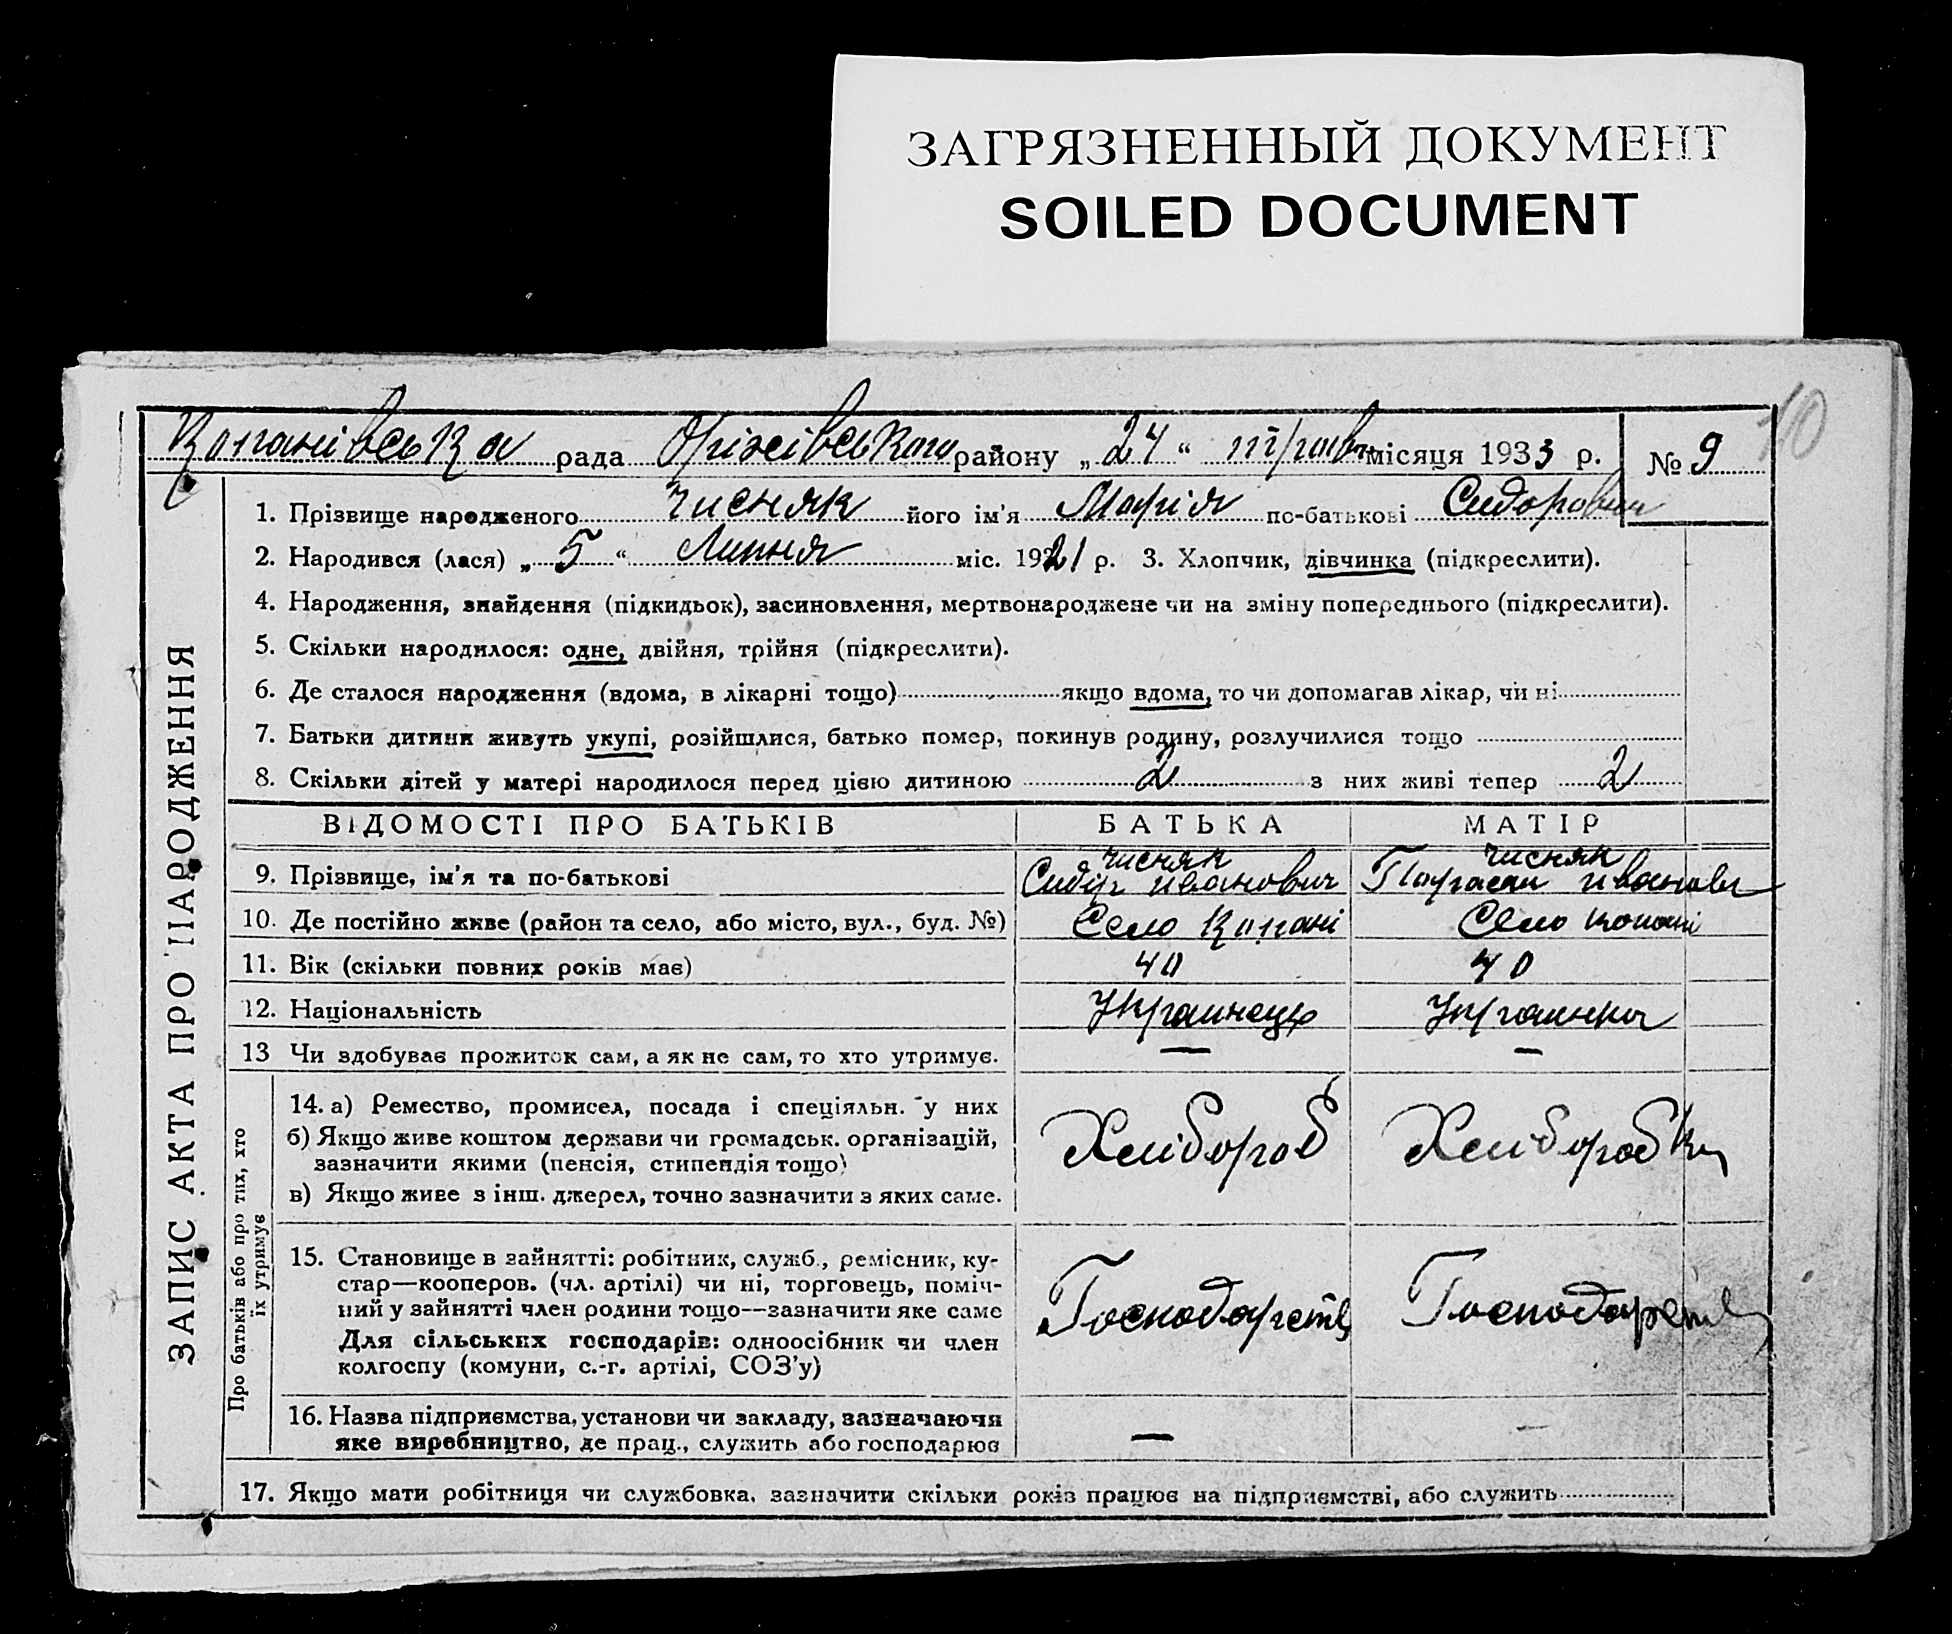 ЗАГРЯЗНЕННЫЙ ДОКУМЕНТ
SOILED DOCUMENT
10
Копанівська рада Оріхівського району „24“ травня місяця 1933 р. № 9
1. Прізвище народженого Чисняк його ім'я Марія по-батькові Сидоровна
2. Народився (лася) „5“ Липня міс. 1921 р. 3. Хлопчик, дівчинка (підкреслити).
4. Народження, знайдення (підкидьок), засиновлення, мертвонароджене чи на зміну попереднього (підкреслити).
5. Скільки народилося: одне, двійня, трійня (підкреслити).
6. Де сталося народження (вдома, в лікарні тощо) якщо вдома, то чи допомагав лікар, чи ні
7. Батьки дитини живуть укупі, розійшлися, батько помер, покинув родину, розлучилися тощо
8. Скільки дітей у матері народилося перед цією дитиною 2 з них живі тепер 2
ЗАПИС АКТА ПРО НАРОДЖЕННЯ
ВІДОМОСТІ ПРО БАТЬКІВ БАТЬКА МАТІР
Чисняк Чисняк
9. Прізвище, ім'я та по-батькові Сидір Иванович Иванов
10. Де постійно живе (район та село, або місто, вул., буд. №) Село Копані Село Копані
11. Вік (скільки повних років має) 40 40
12. Національність Украинець Украинка
13 Чи здобуває прожиток сам, а як не сам, то хто утримує. — —
Про батьків або про тих, хто
їх утримує
14. а) Ремество, промисел, посада і спеціяльн. у них
б) Якщо живе коштом держави чи громадськ. організацій,
зазначити якими (пенсія, стипендія тощо)
в) Якщо живе з інш. джерел, точно зазначити з яких саме.
Хлібороб Хліборобка
15. Становище в зайнятті: робітник, служб., ремісник, ку-
стар—кооперов. (чл. артілі) чи ні, торговець, поміч-
ний у зайнятті член родини тощо—зазначити яке саме
Для сільських господарів: одноосібник чи член
колгоспу (комуни, с.-г. артілі, СОЗ'у)
16. Назва підприємства, установи чи закладу, зазначаючи
яке виробництво, де прац., служить або господарює — —
17. Якщо мати робітниця чи службовка, зазначити скільки років працює на підприємстві, або служить